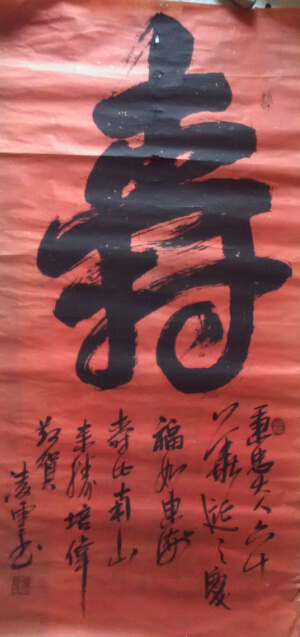 壽
秉忠大人六十
華誕之慶
福如東海
壽比南山
来勝培偉
敬賀
凌雲书